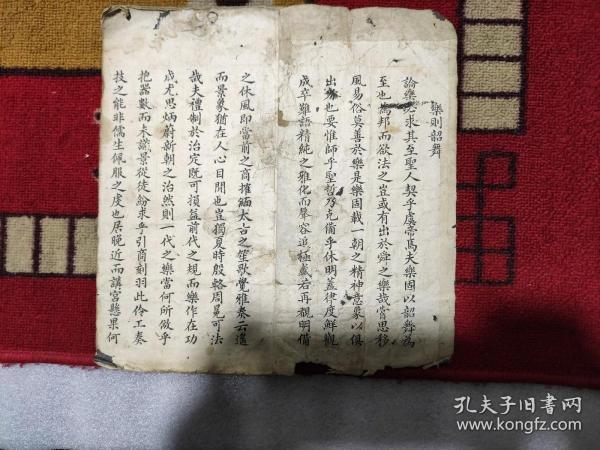 樂則韶舞
論樂必求其至聖人契乎虞帝焉夫樂固以韶舞為
至也為邦而欲法之豈或有出於舜之樂哉嘗思移
風易俗莫善於樂是樂固載一朝之精神意象以俱
出者也要惟師乎聖哲乃克備乎休明蓋律度鮮觀
成卒難語精純之雅化而聲容追極盛若再覩明備
之休風即當前之商搉緬太古之笙歌覺雅奏云遙
而景象猶在人心目間也豈獨夏時殷輅周冕可法
哉夫禮制於治定既可損益前代之規而樂作在功
成尤思炳蔚新朝之治然則一代之樂當何所倣乎
抱器數而未識景從徒紛求乎引商刻羽此伶工奏
技之能非儒生佩服之度也居晚近而講宮懸果何
孔夫子旧书网
www.kongfz.com